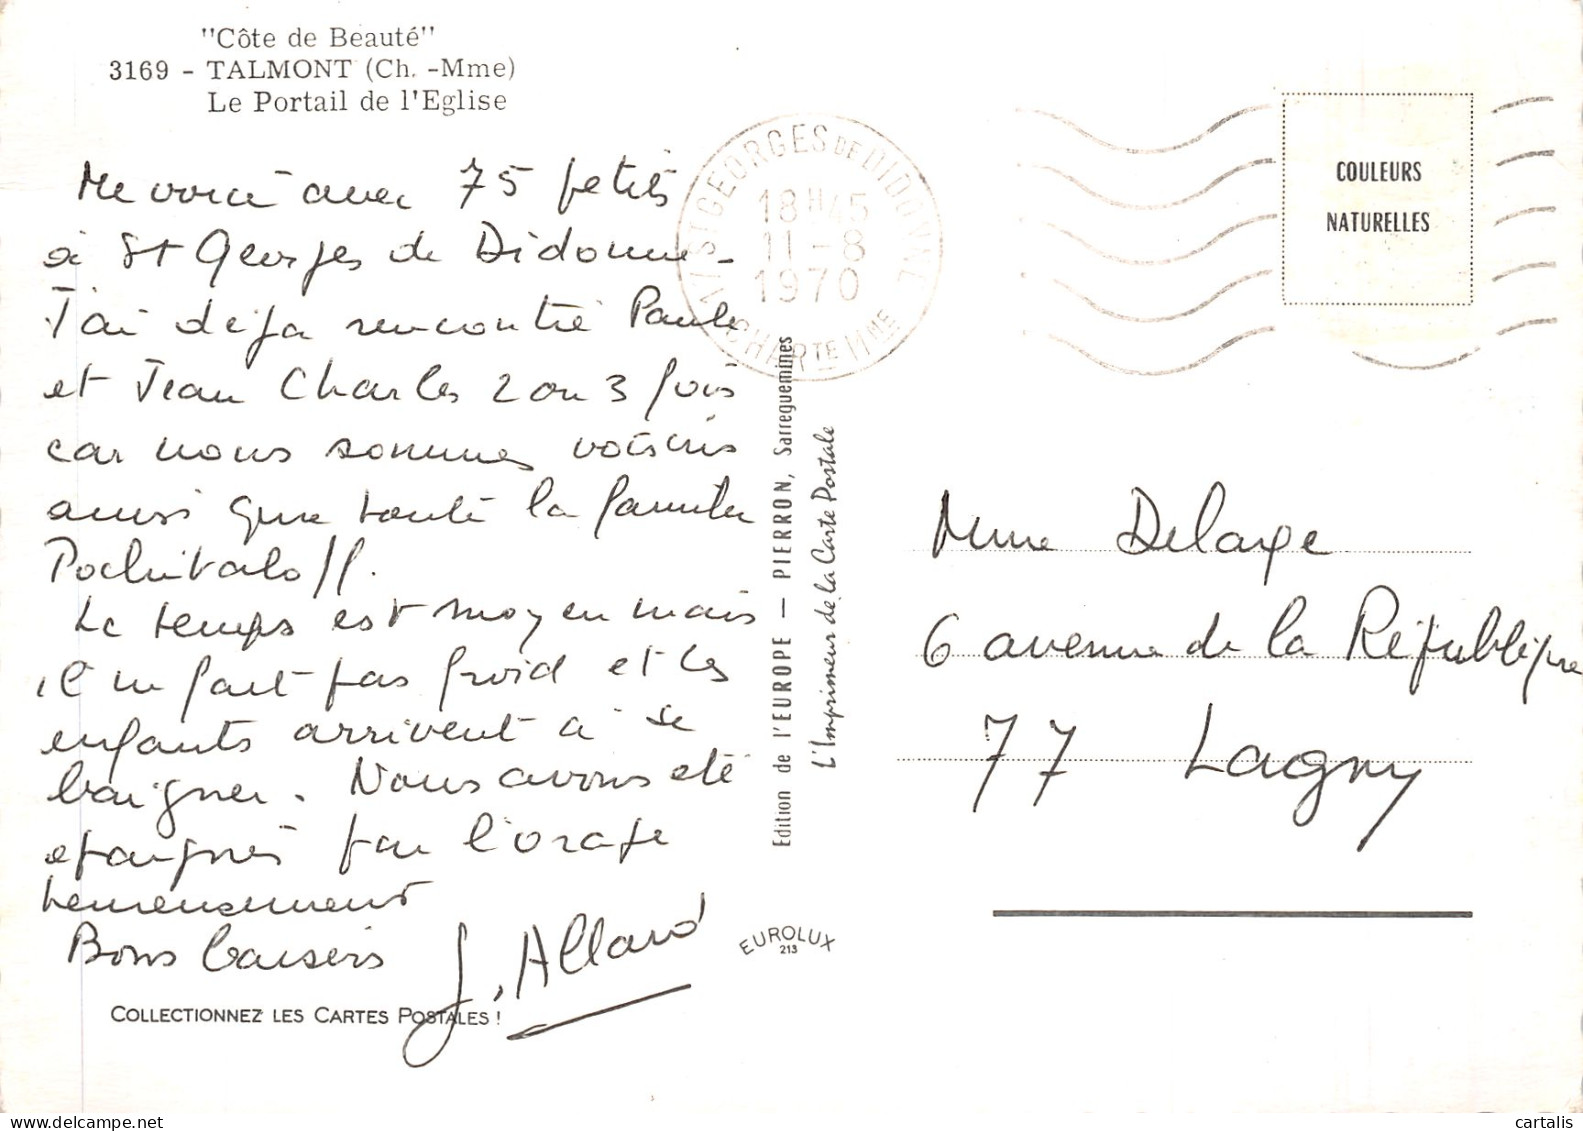 "Côte de Beauté"
3169 - TALMONT (Ch. -Mme)
Le Portail de l'Eglise
Me voici avec 75 petits
à St Georges de Didonne.
J'ai déja rencontré Paule
et Jean Charles 2 ou 3 fois
car nous sommes voisins
ainsi que toute la famille
Le temps est moyen mais
il ne fait pas froid et les
enfants arrivent à se
baigner. Nous avons été
épargnés par l'orage
heureusement
Bons baisers
J. Allard
COLLECTIONNEZ LES CARTES POSTALES !
17 ST GEORGES DE DIDONNE
18H45
11-8
1970
CHARTE MME
Edition de l'EUROPE — PIERRON, Sarreguemines
L'Imprimeur de la Carte Postale
EUROLUX
213
COULEURS
NATURELLES
Mme Delage
6 avenue de la République
77 Lagny
cartalis